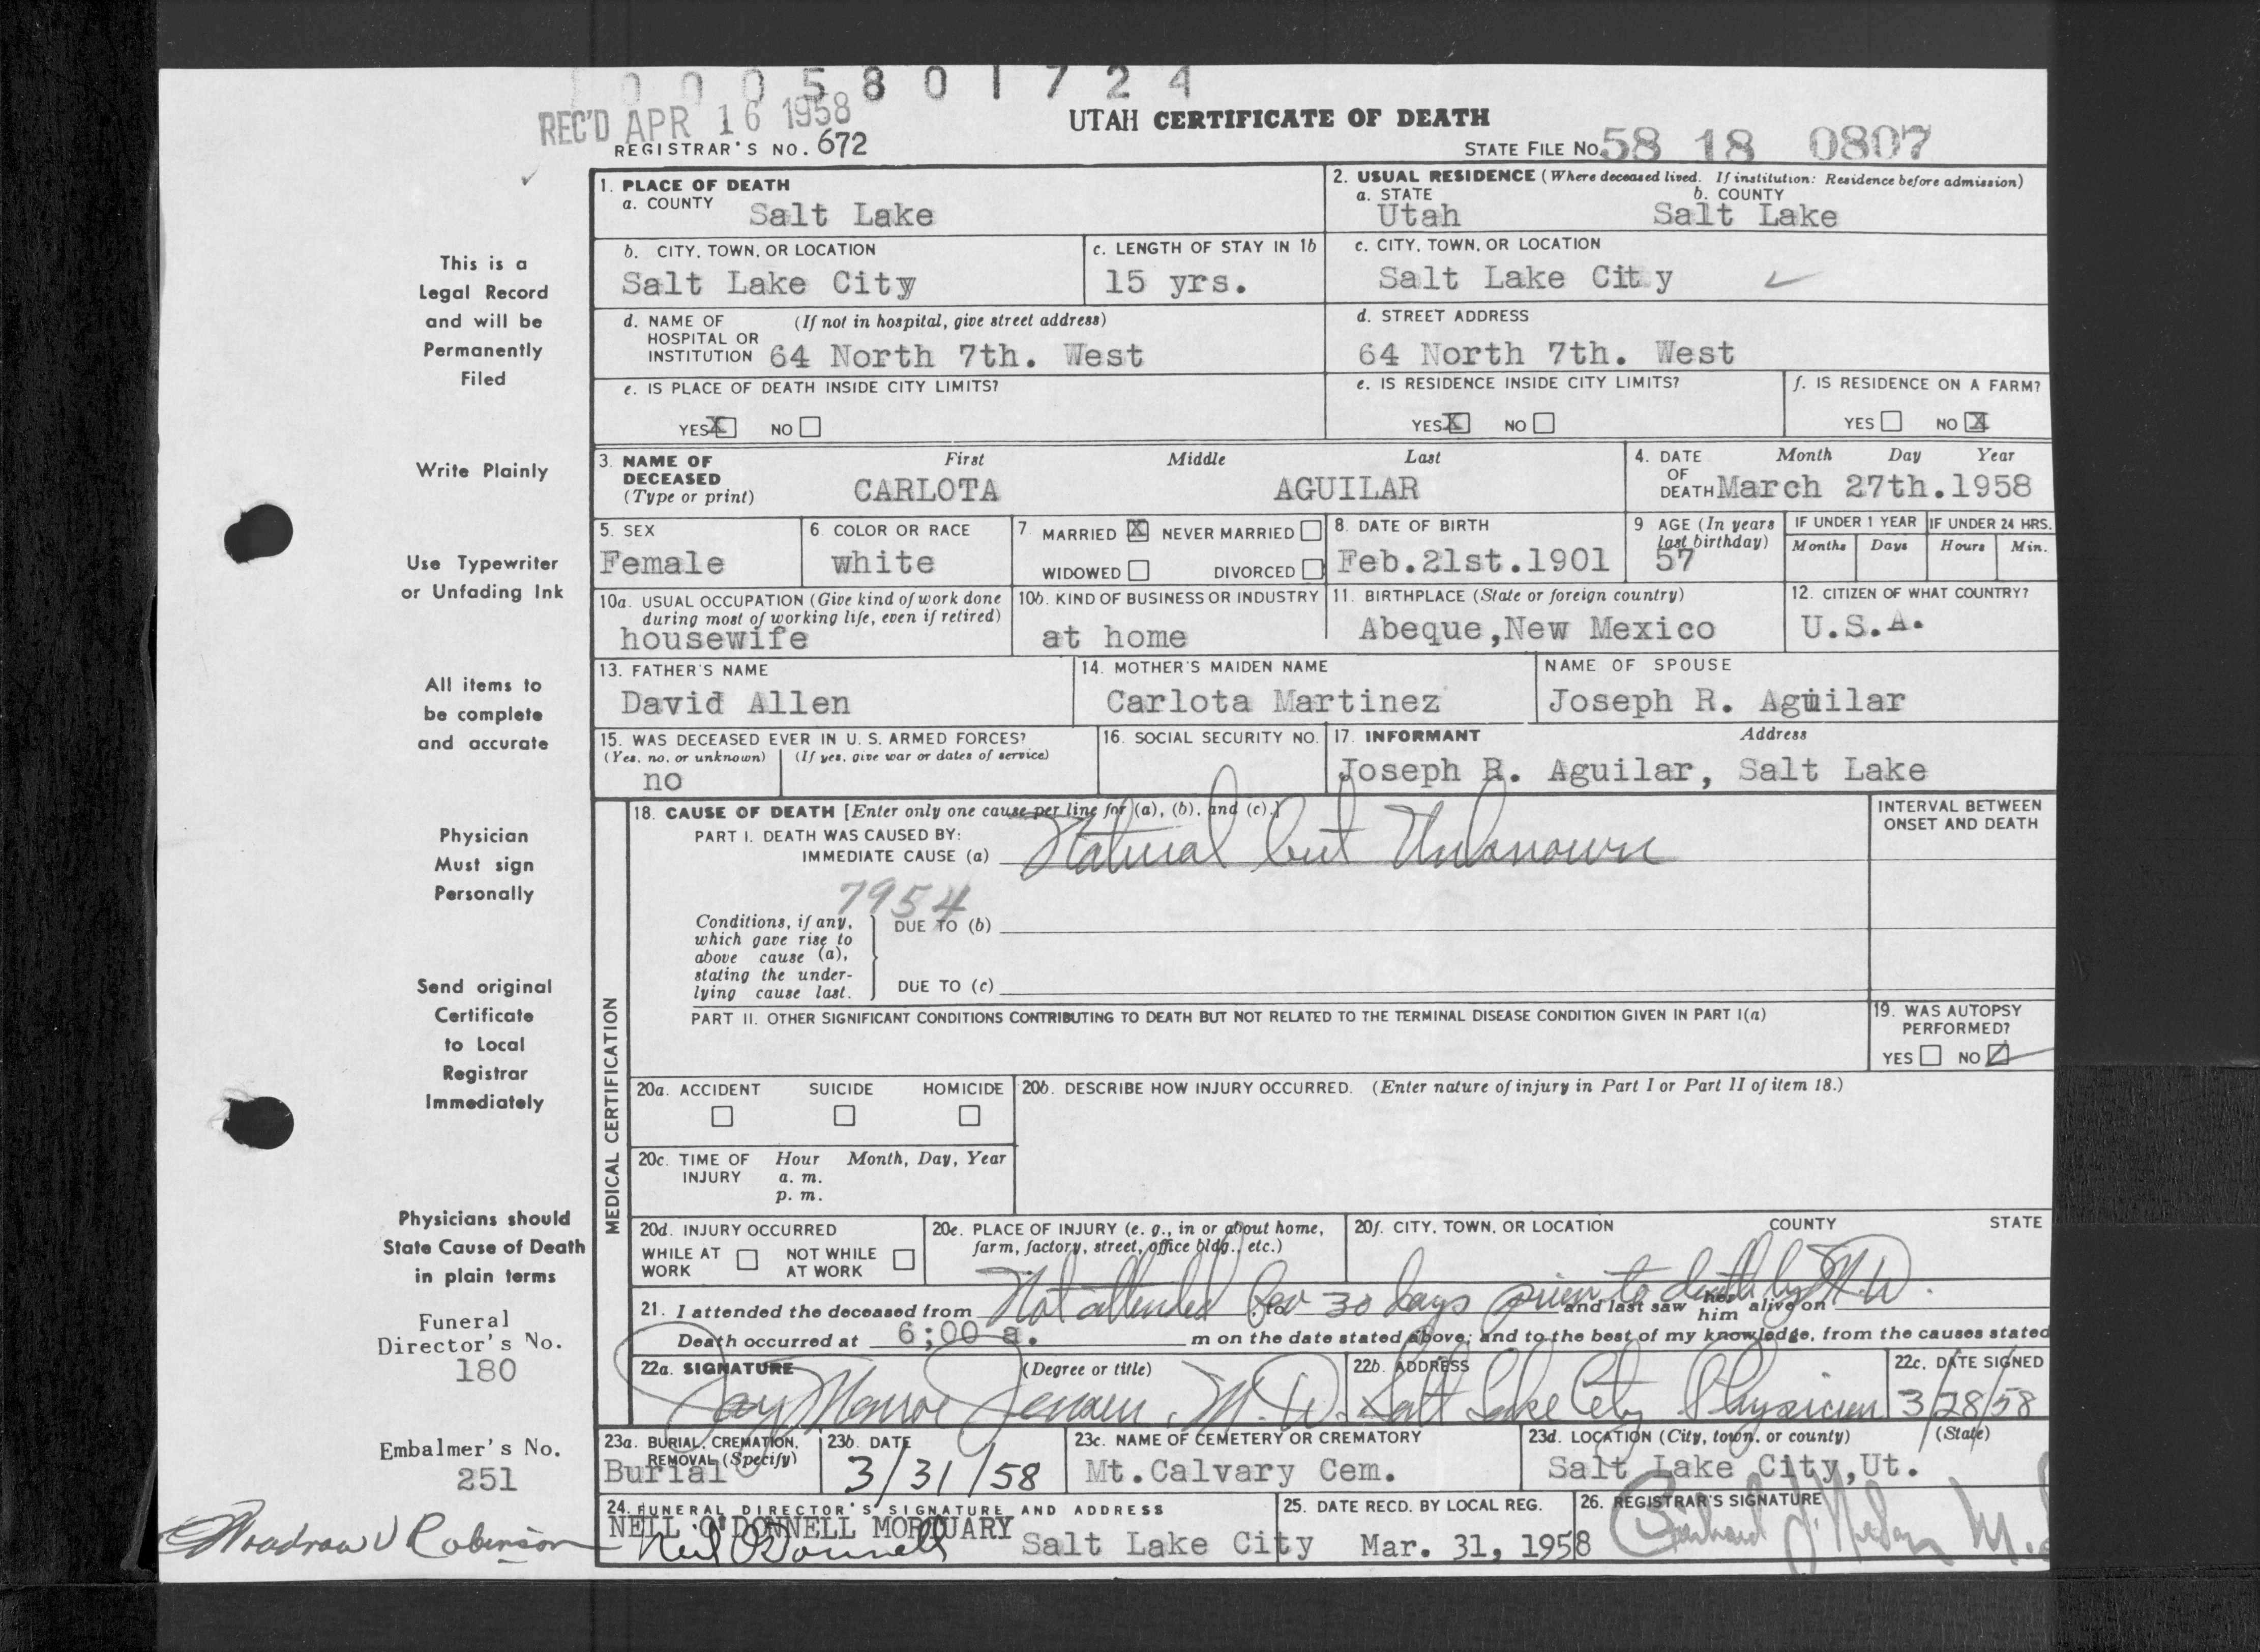 0 0 0 5 8 0 1 7 2 4
REC'D APR 16 1958
UTAH CERTIFICATE OF DEATH
REGISTRAR'S NO. 672
STATE FILE NO. 58 18 0807
This is a
Legal Record
and will be
Permanently
Filed
Write Plainly
Use Typewriter
or Unfading Ink
All items to
be complete
and accurate
Physician
Must sign
Personally
Send original
Certificate
to Local
Registrar
Immediately
Physicians should
State Cause of Death
in plain terms
Funeral
Director's No.
180
Embalmer's No.
251
Woodrow V Robinson
1. PLACE OF DEATH
a. COUNTY Salt Lake
2. USUAL RESIDENCE (Where deceased lived. If institution: Residence before admission)
a. STATE b. COUNTY
Utah Salt Lake
b. CITY, TOWN, OR LOCATION
Salt Lake City
c. LENGTH OF STAY IN 1b
15 yrs.
c. CITY, TOWN, OR LOCATION
Salt Lake City
d. NAME OF (If not in hospital, give street address)
HOSPITAL OR
INSTITUTION 64 North 7th. West
d. STREET ADDRESS
64 North 7th. West
e. IS PLACE OF DEATH INSIDE CITY LIMITS?
YES X NO
e. IS RESIDENCE INSIDE CITY LIMITS?
YES X NO
f. IS RESIDENCE ON A FARM?
YES NO X
3. NAME OF First Middle Last
DECEASED
(Type or print) CARLOTA AGUILAR
4. DATE Month Day Year
OF
DEATH March 27th.1958
5. SEX
Female
6. COLOR OR RACE
white
7 MARRIED X NEVER MARRIED
WIDOWED DIVORCED
8. DATE OF BIRTH
Feb.21st.1901
9 AGE (In years
last birthday)
57
IF UNDER 1 YEAR IF UNDER 24 HRS.
Months Days Hours Min.
10a. USUAL OCCUPATION (Give kind of work done
during most of working life, even if retired)
housewife
10b. KIND OF BUSINESS OR INDUSTRY
at home
11. BIRTHPLACE (State or foreign country)
Abeque,New Mexico
12. CITIZEN OF WHAT COUNTRY?
U.S.A.
13. FATHER'S NAME
David Allen
14. MOTHER'S MAIDEN NAME
Carlota Martinez
NAME OF SPOUSE
Joseph R. Aguilar
15. WAS DECEASED EVER IN U. S. ARMED FORCES?
(Yes, no, or unknown) (If yes, give war or dates of service)
no
16. SOCIAL SECURITY NO.
17. INFORMANT Address
Joseph R. Aguilar, Salt Lake
MEDICAL CERTIFICATION
18. CAUSE OF DEATH [Enter only one cause per line for (a), (b), and (c).]
PART I. DEATH WAS CAUSED BY:
IMMEDIATE CAUSE (a) Natural but Unknown
INTERVAL BETWEEN
ONSET AND DEATH
7954
Conditions, if any,
which gave rise to
above cause (a),
stating the under-
lying cause last.
DUE TO (b)
DUE TO (c)
PART II. OTHER SIGNIFICANT CONDITIONS CONTRIBUTING TO DEATH BUT NOT RELATED TO THE TERMINAL DISEASE CONDITION GIVEN IN PART I(a)
19. WAS AUTOPSY
PERFORMED?
YES NO
20a. ACCIDENT SUICIDE HOMICIDE
20b. DESCRIBE HOW INJURY OCCURRED. (Enter nature of injury in Part I or Part II of item 18.)
20c. TIME OF Hour Month, Day, Year
INJURY a. m.
p. m.
20d. INJURY OCCURRED
WHILE AT NOT WHILE
WORK AT WORK
20e. PLACE OF INJURY (e. g., in or about home,
farm, factory, street, office bldg., etc.)
20f. CITY, TOWN, OR LOCATION COUNTY STATE
Not attended for 30 days prior to death by M.D.
21. I attended the deceased from to and last saw her him alive on
Death occurred at 6;00 a. m on the date stated above; and to the best of my knowledge, from the causes stated
22a. SIGNATURE (Degree or title)
Jay Monroe Jensen, M.D.
22b. ADDRESS
Salt Lake City Physician
22c. DATE SIGNED
3/28/58
23a. BURIAL, CREMATION,
REMOVAL (Specify)
Burial
23b. DATE
3/31/58
23c. NAME OF CEMETERY OR CREMATORY
Mt.Calvary Cem.
23d. LOCATION (City, town, or county) (State)
Salt Lake City,Ut.
24. FUNERAL DIRECTOR'S SIGNATURE AND ADDRESS
NEIL O'DONNELL MORTUARY
Neil O'Donnell Salt Lake City
25. DATE RECD. BY LOCAL REG.
Mar. 31, 1958
26. REGISTRAR'S SIGNATURE